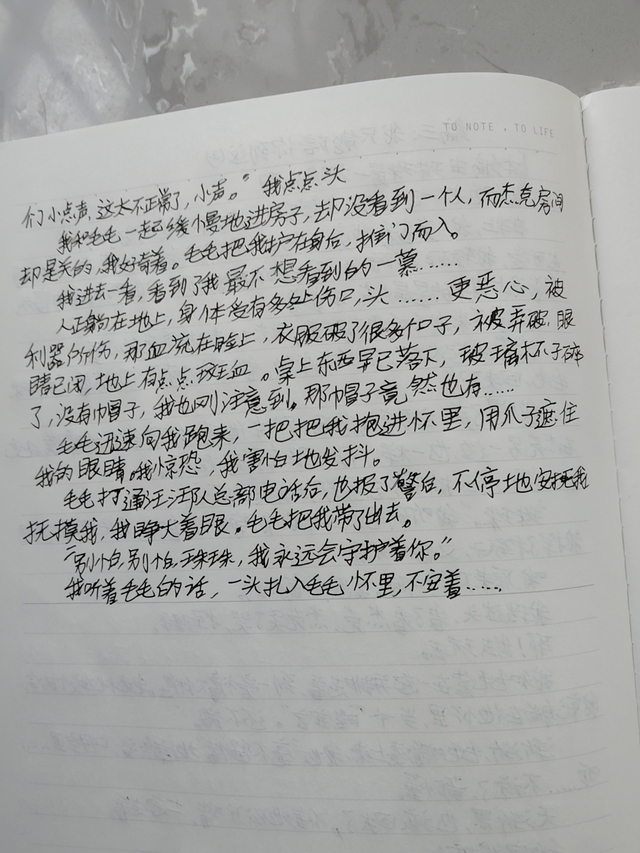 TO NOTE , TO LIFE
们小点声,这太不正常了,小声。”我点点头
我和毛毛一起缓慢地进房子,却没看到一个人,而杰克房间
却是关的,我好奇着。毛毛把我护在身后,推门而入。
我进去一看,看到了我最不想看到的一幕……
人正躺在地上,身体受有多处伤口,头……更恶心,被
利器所伤,那血流在脸上,衣服破了很多个口子,被弄破,眼
睛已闭,地上有点点斑血。桌上东西早已落下,玻璃杯子碎
了,没有巾帽子,我也刚注意到。那帽子竟然也有……
毛毛迅速向我跑来,一把把我抱进怀里,用爪子遮住
我的眼睛。我惊恐,我害怕地发抖。
毛毛打通汪汪队总部电话后,也报了警后,不停地安抚我
抚摸我,我睁大着眼。毛毛把我带了出去。
“别怕,别怕,珠珠,我永远会守护着你。”
我听着毛毛的话,一头扎入毛毛怀里,不安着……